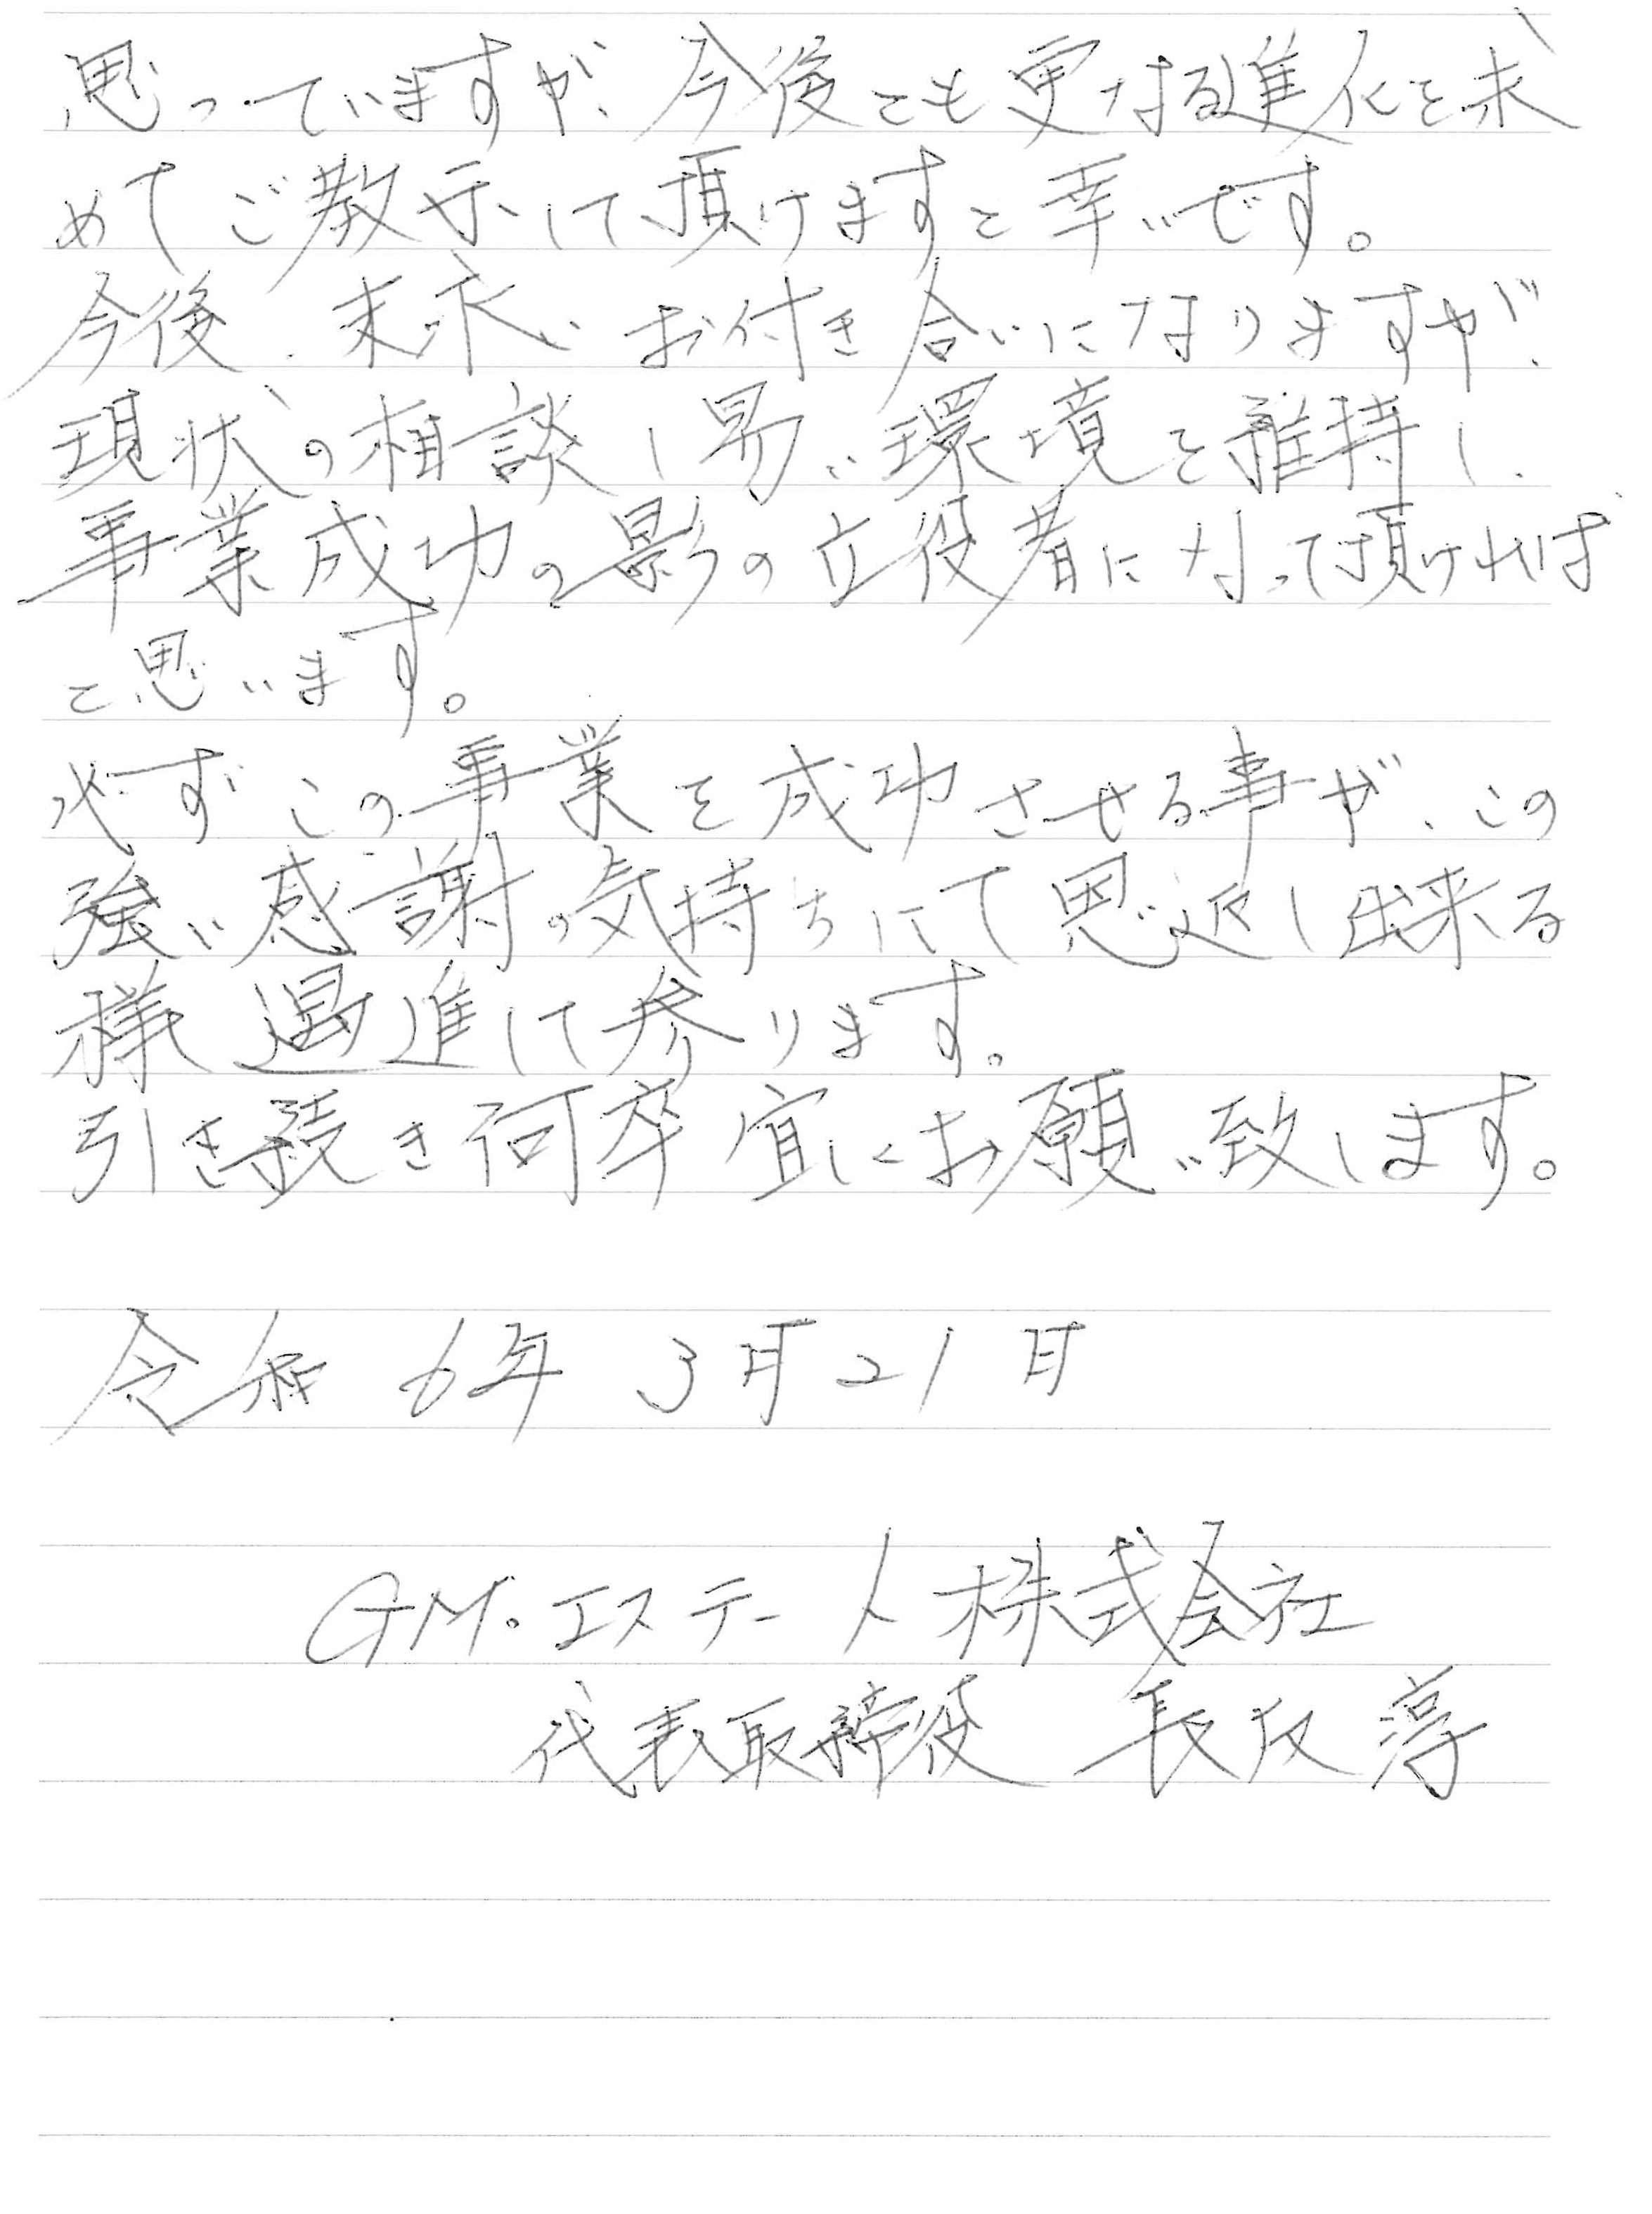 思っていますが、今後とも更なる進化を求
めてご教示して頂けますと幸いです。
今後、末永いお付き合いになりますが、
現状の相談し易い環境を維持し、
事業成功の影の立役者になって頂ければ
と思います。
必ずこの事業を成功させる事が、この
強い感謝の気持ちにて恩返し出来る
様邁進して参ります。
引き続き何卒宜しくお願い致します。
令和6年3月21日
GM.エステート株式会社
代表取締役 長坂 淳